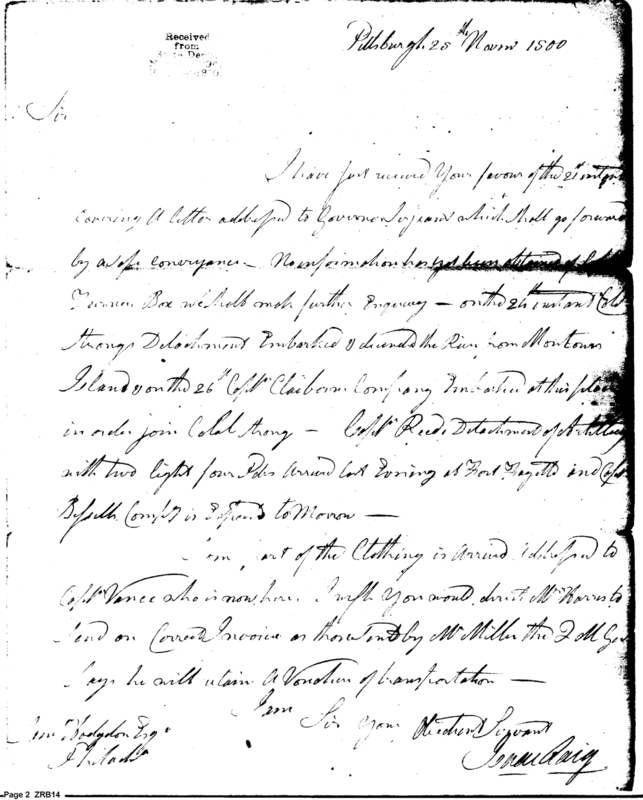 Received
from
Pittsburgh 28th Novm 1800
Sir
I have just received Your favour of the 21st instant
covering A letter addressed to Governor Serjeant which shall go forward
by a safe conveyance — No information has yet been obtained of
Box we shall make further Enquiry — on the 24th instant Coll
Strongs Detachment Embarked & decended the River from Montours
Island & on the 26th Captn Claiborn Company Embarked at this place
in order join Colol Strong — Captn Reeds Detachment of Artillery
with two light four Pdrs Arrived last Evening at Fort Fayette and Capt
Bissells Compy is Expected to Morrow —
part of the Clothing is arrived addressed to
Captn Vance who is now here I wish You would direct Mr Harris to
send on Correct Invoice as those sent by Mr Miller the Q M Gen
says he will retain A Voucher of transportation —
I am Sir Your Obedient Servant
Isaac Craig
Hodgdon Esqr
Philada
Page 2 ZRB14